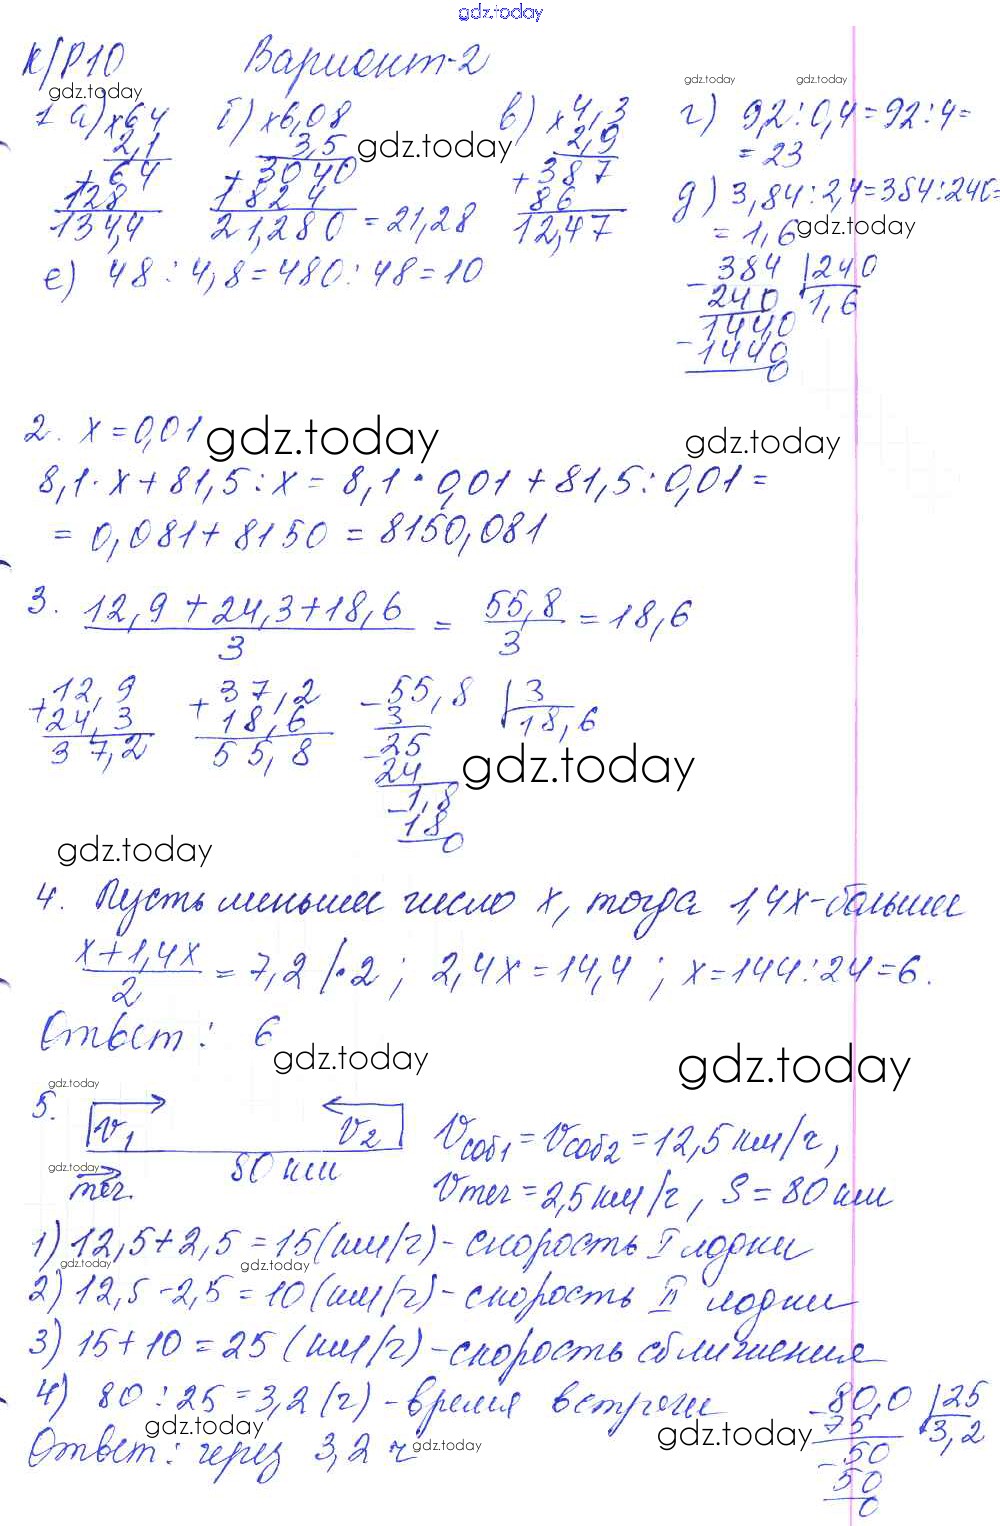 gdz.today
К/Р10 Вариант-2
gdz.today gdz.today gdz.today
1 а) ×64 б) ×6,08 в) ×4,3 г) 9,2:0,4=92:4=
2,1 3,5 gdz.today 2,9 =23
+64 +3040 +387 д) 3,84:2,4=384:240=
128 1824 86 =1,6 gdz.today
134,4 21,280=21,28 12,47
е) 48:4,8=480:48=10 -384 |240
240 1,6
144,0
-1440
0
2. x=0,01 gdz.today gdz.today
8,1·x+81,5:x=8,1·0,01+81,5:0,01=
=0,081+8150=8150,081
3. (12,9+24,3+18,6)/3 = 55,8/3 =18,6
+12,9 +37,2 -55,8 |3
24,3 18,6 3 18,6
37,2 55,8 -25
24 gdz.today
-1,8
18
0
gdz.today
4. Пусть меньшее число x, тогда 1,4x-большее
(x+1,4x)/2 =7,2 |·2; 2,4x=14,4; x=144:24=6.
Ответ: 6
gdz.today gdz.today
gdz.today
5. V1 V2 Vсоб1=Vсоб2=12,5км/ч,
gdz.today 80км
теч. Vтеч=2,5км/ч, S=80км
1) 12,5+2,5=15(км/ч)-скорость I лодки
gdz.today gdz.today
2) 12,5-2,5=10(км/ч)-скорость II лодки
3) 15+10=25(км/ч)-скорость сближения
4) 80:25=3,2(ч)-время встречи -80,0 |25
gdz.today gdz.today 75 3,2
Ответ: через 3,2ч gdz.today -50
50
0